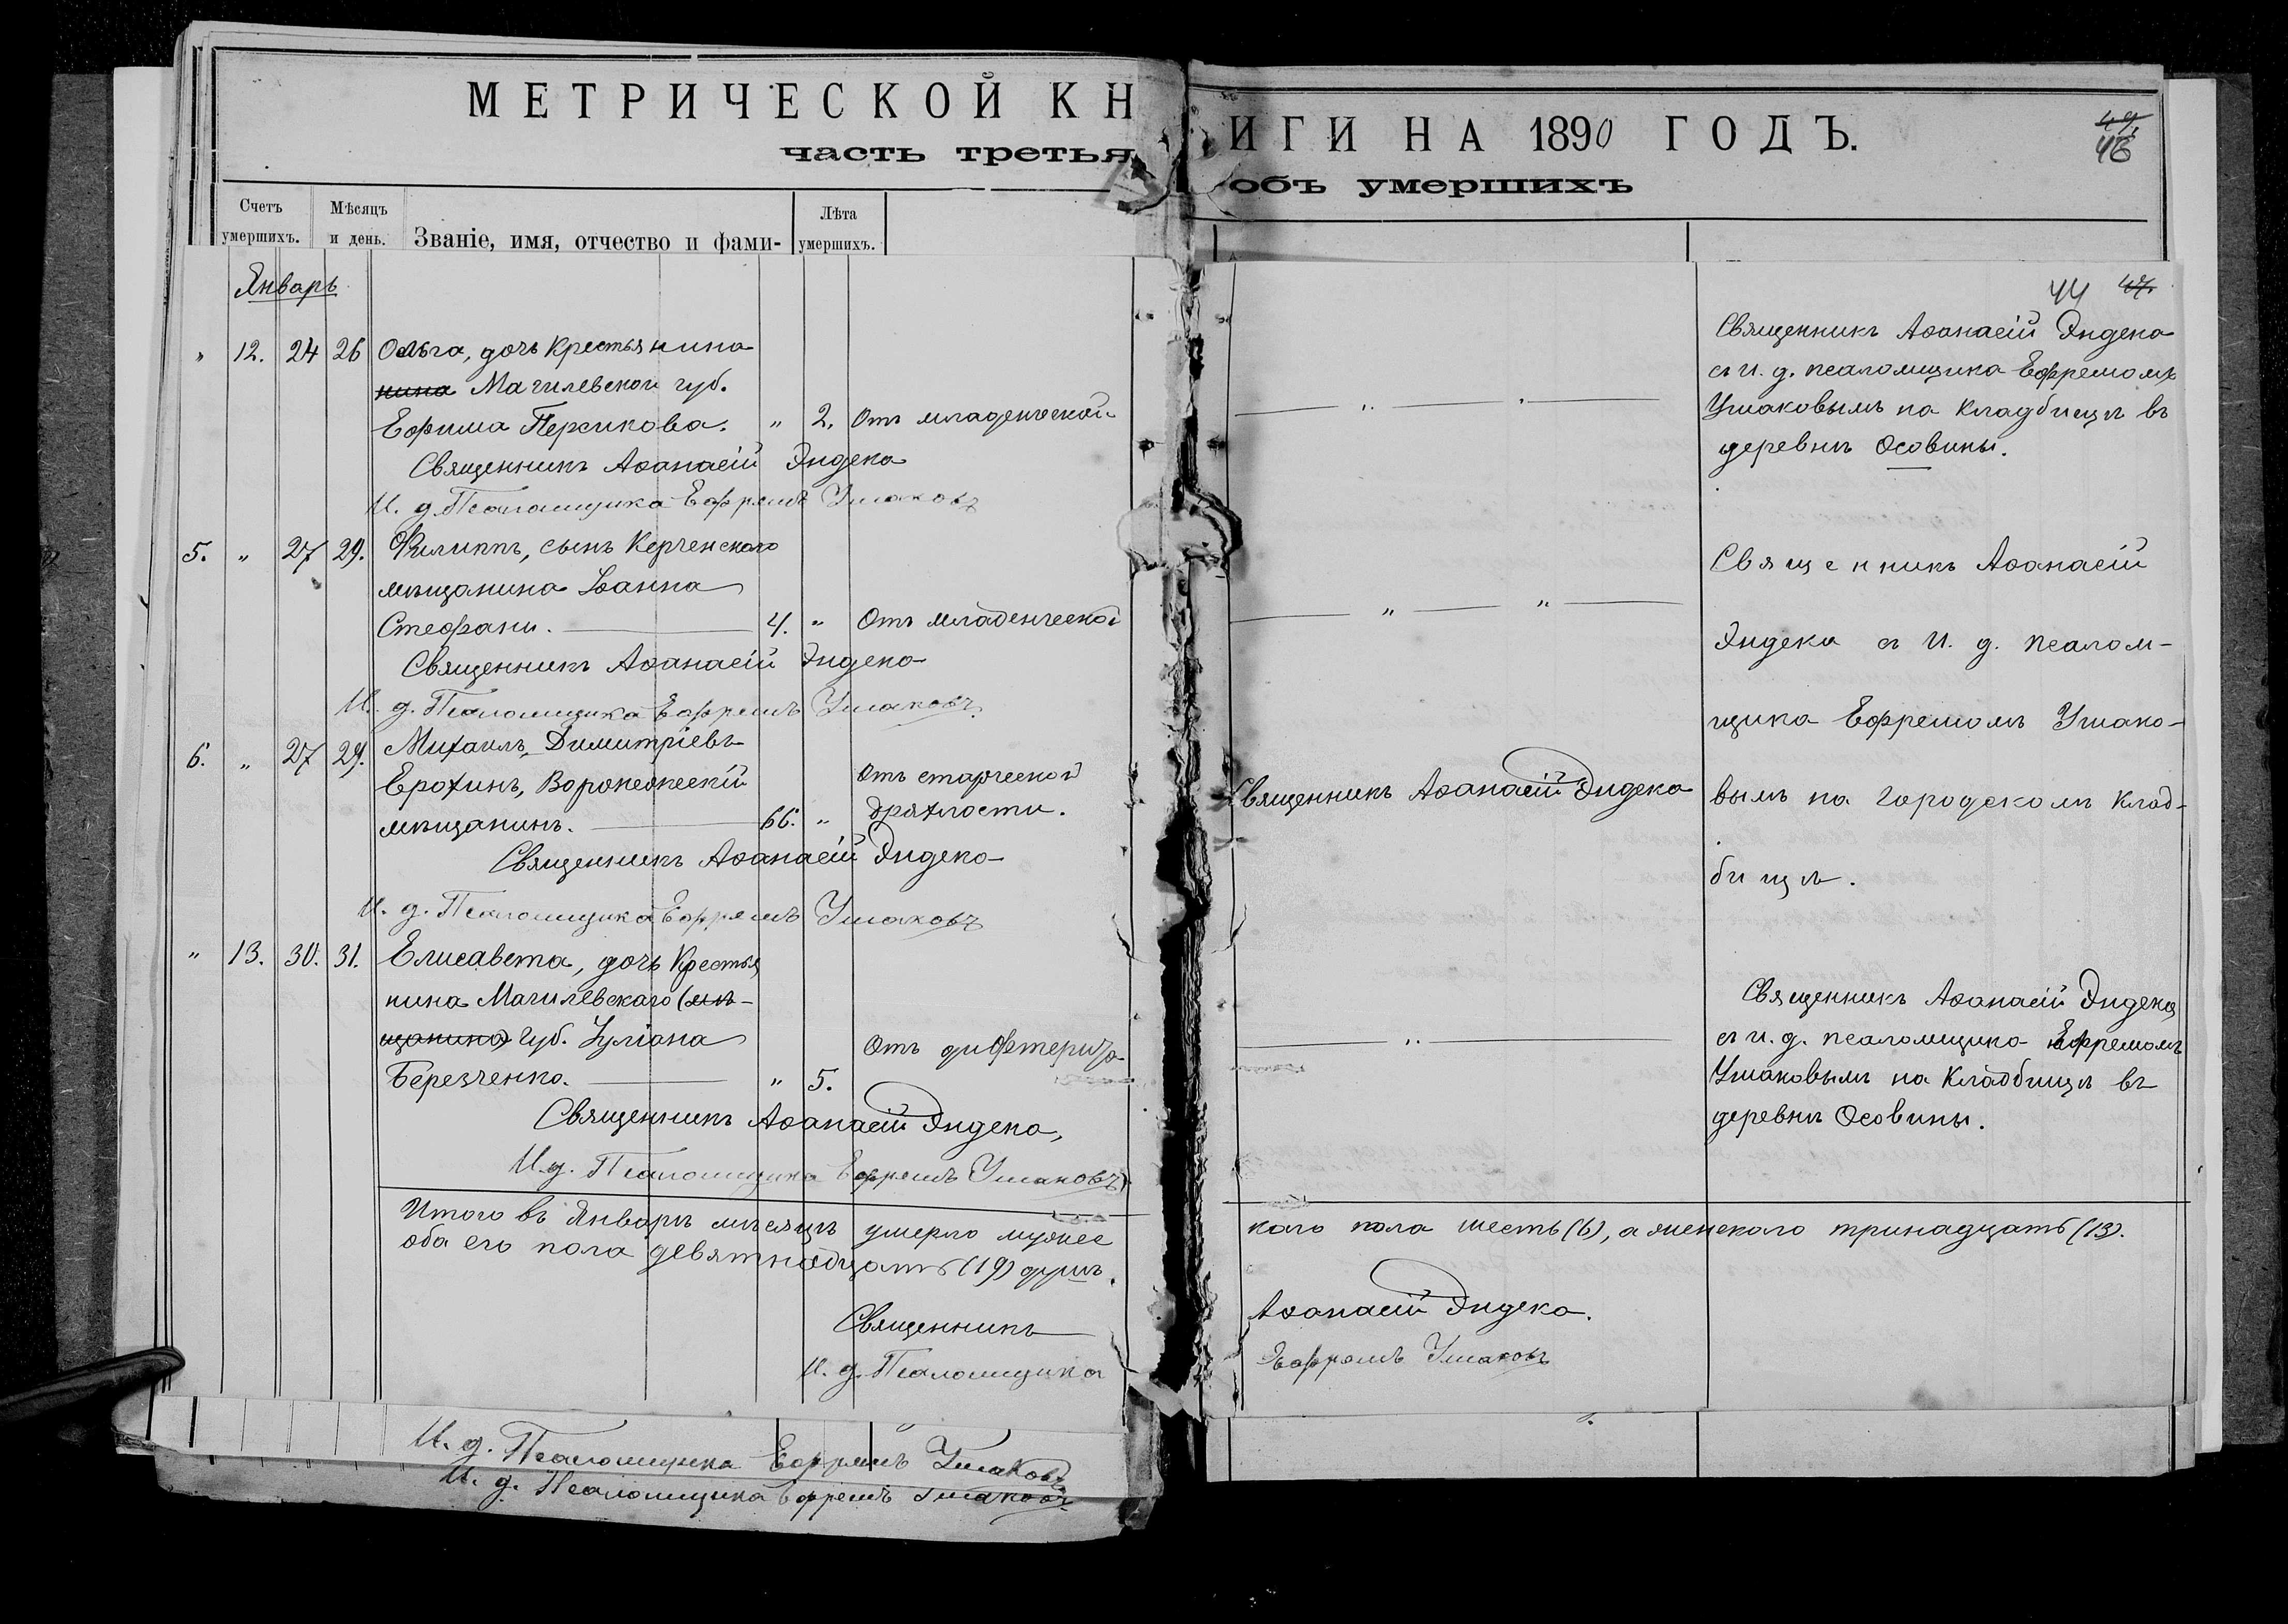 МЕТРИЧЕСКОЙ КН
часть третья
Счетъ умершихъ.
Мѣсяцъ и день.
Званіе, имя, отчество и фами-
Лѣта умершихъ.
Январь
" 12. 24 26 Ольга, дочь Крестьянина
нина Магилевской губ.
Ефима Персикова. " 2. Отъ младенческой
Священникъ Аѳанасій Эндека
И. д. Псаломщика Ефремъ Ушаковъ
5. " 27 29. Филиппъ, сынъ Керченскаго
мѣщанина Іоанна
Стефани. 4. " Отъ младенческой
Священникъ Аѳанасій Эндека
И. д. Псаломщика Ефремъ Ушаковъ
6. " 27 29. Михаилъ Димитріевъ
Ерохинъ, Воронежскій
мѣщанинъ. 66. "
Отъ старческой
дряхлости.
Священникъ Аѳанасій Эндека
И. д. Псаломщика Ефремъ Ушаковъ
" 13. 30. 31. Елисавета, дочь Крестья
нина Магилевскаго (мѣ-
щанина) губ. Іуліана
Березченко. " 5.
Отъ дифтерита
Священникъ Аѳанасій Эндека,
И. д. Псаломщика Ефремъ Ушаковъ
Итого въ Январѣ мѣсяцѣ умерло мужес
оба его пола девятнадцать (19) душъ.
Священникъ
И. д. Псаломщика
И. д. Псаломщика Ефремъ Ушаковъ
И. д. Псаломщика Ефремъ Ушаковъ
ИГИ НА 1890 ГОДЪ.
объ умершихъ
47.
46
44 47.
Священникъ Аѳанасій Эндека
съ И. д. псаломщика Ефремомъ
Ушаковымъ на кладбищѣ въ
деревнѣ Осовины.
" "
Священникъ Аѳанасій
" "
Эндека съ И. д. псалом-
щика Ефремомъ Ушако-
Священникъ Аѳанасій Эндека
вымъ на Городскомъ клад-
бищѣ.
Священникъ Аѳанасій Эндека
"
съ и. д. псаломщика Ефремомъ
Ушаковымъ на Кладбищѣ въ
деревнѣ Осовины.
каго пола шесть (6), а женскаго тринадцать (13).
Аѳанасій Эндека.
Ефремъ Ушаковъ